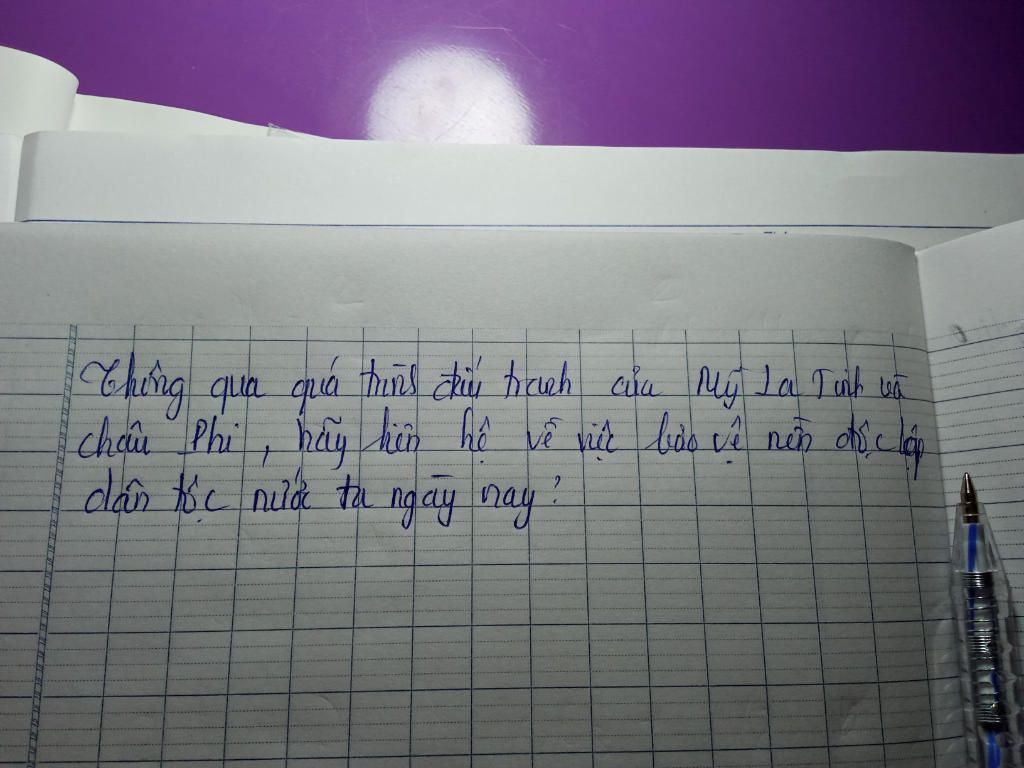 Thông qua quá trình đấu tranh của Mỹ La Tinh và
châu Phi, hãy liên hệ về việc bảo vệ nền độc lập
dân tộc nước ta ngày nay?